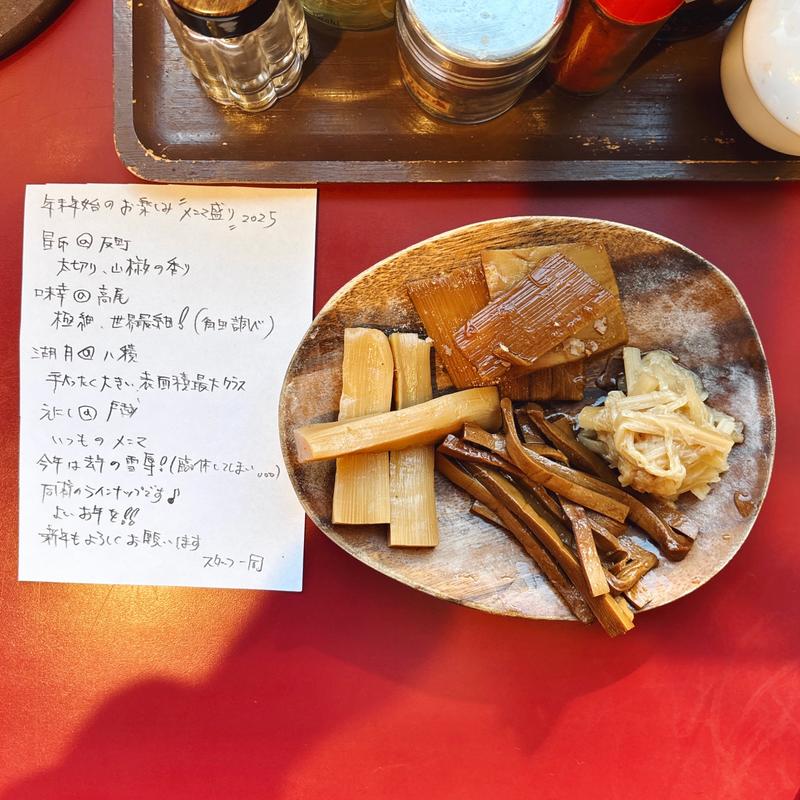 年末年始のお楽しみ〝メンマ盛り〟2025
@ 反町
太切り、山椒の香り
味幸 @ 高尾
極細、世界最細!(自由調べ)
湖月 @ 八積
平たくて大きい、表面積最大クラス
えにし @ 戸越
いつものメンマ
今年は去年の雪辱!(臨休してしまい...)
同様のラインナップです♪
よいお年を!!
新年もよろしくお願いします
スタッフ一同